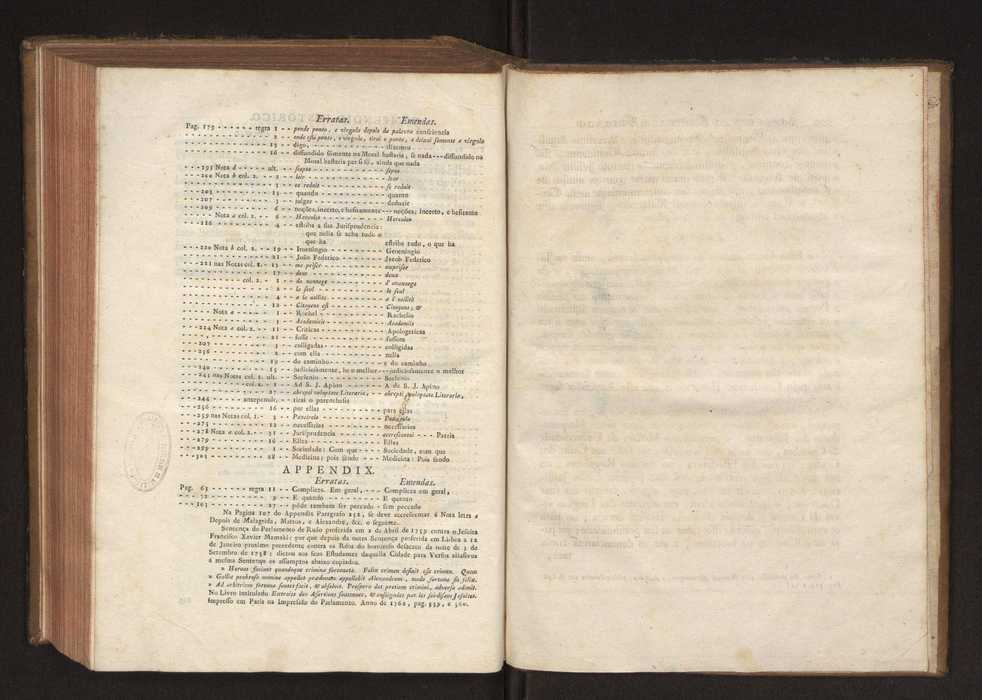 Erratas. Emendas.
Pag. 179 - - - - - - regra 1 - - ponde ponto, e virgula depois da palavra consciencia
- - - - - - - - - - - - - - - - 2 - - onde está ponto, e virgula, tirai o ponto, e deixai sómente a virgula
- - - - - - - - - - - - - - - - 15 - - digo, - - - - - - - - dizemos
- - - - - - - - - - - - - - - - 16 - - diffundido sómente na Moral bastaria, se nada - - - diffundido na
Moral bastaria per si só, ainda que nada
- - - 193 Nota d - - - - - - ult. - - saepes - - - - - - - - sepes
- - - 200 Nota b col. 2. - - 2 - - loir - - - - - - - - loer
- - - - - - - - - - - - - - - - 3 - - se reduit
- - - 203 - - - - - - - - - - 15 - - quando - - - - - - - - quanto
- - - 207 - - - - - - - - - - 3 - - julgar - - - - - - - - deduzir
- - - 209 - - - - - - - - - - 6 - - noções, incerto, e hesitante - - - noções; incerto, e hesitante
- - - Nota a col. 2. - - 6 - - Hercules - - - - - - - -
- - - 216 - - - - - - - - - - 4 - - estriba a sua Jurisprudencia:
que nella se acha tudo o
que ha - - - - - - - - estriba tudo, o que ha
- - - 220 Nota b col. 2. - - 19 - - - - - - - - - - Genuningio
- - - - - - - - - - - - - - - - 21 - - João Federico - - - - - - - - Jacob Federico
- - - 221 nas Notas col. 1. - 15 - - me priser - - - - - - - - mepriser
- - - - - - - - - - - - - - - - 17 - - deux - - - - - - - - deux
- - - - - - - - - - col. 2. - 1 - - do - - - - - - - -
- - - - - - - - - - - - - - - - 2 - - le seul - - - - - - - - le seul
- - - - - - - - - - - - - - - - 4 - -
- - - - - - - - - - - - - - - - 10 - - Citoyens est - - - - - - - - Citoyens, &
- - - Nota a - - - - - - 1 - - Rachel - - - - - - - - Rachelio
- - - - - - - - - - - - - - - - 1 - - Academicis - - - - - - - - Academiis
- - - 224 Nota a col. 2. - - 11 - - Criticas - - - - - - - - Apologeticas
- - - - - - - - - - - - - - - - 21 - - fosse - - - - - - - - fossem
- - - 227 - - - - - - - - - - 3 - - colligadas - - - - - - - - colligidas
- - - 236 - - - - - - - - - - 2 - - com ella - - - - - - - - nella
- - - - - - - - - - - - - - - - 19 - - do caminho - - - - - - - - e do caminho
- - - 240 - - - - - - - - - - 15 - - judiciosamente, he o melhor - - - judiciosamente o melhor
- - - 241 nas Notas col. 2. ult. - - - - - - - - - - Soclenio
- - - - - - - - - - col. 2. - 1 - - Ad S. J. Apino - - - - - - - - A de S. J. Apino
- - - - - - - - - - - - - - - - 27 - - abrepti voluptate Literaria, - - - abrepti voluptate Literariæ,
- - - 244 - - - - - antepenult. - - tirai o parenthesis
- - - 256 - - - - - - - - - - 16 - - por ellas - - - - - - - - para ellas
- - - 259 nas Notas col. 1. - 3 - - Panciroli - - - - - - - -
- - - 275 - - - - - - - - - - 12 - - necessarias - - - - - - - - necessarios
- - - 278 Nota a col. 2. - - 31 - - Jurisprudencia - - - - - - accrescentai - - - Patria
- - - 279 - - - - - - - - - - 16 - - Elles - - - - - - - - Ellas
- - - 299 - - - - - - - - - - 1 - - Sociedade: Com que - - - - Sociedade, com que
- - - 301 - - - - - - - - - - 28 - - Medicina: pois sendo - - - Medicina: Pois sendo
APPENDIX.
Erratas. Emendas.
Pag. 63 - - - - - - - regra 11 - - Complices. Em geral, - - - Complices em geral,
- - - 72 - - - - - - - - - - 9 - - E quando - - - - - - - - E quanto
- - - 103 - - - - - - - - - - 27 - - póde tambem ser peccado - - - sem peccado
Na Pagina 107 do Appendix Paragrafo 252, se deve accrescentar á Nota letra a
Depois de Malagrida, Mattos, e Alexandre, &c. o seguinte.
Sentença do Parlamento de Ruão proferida em 2 de Abril de 1759 contra o Jesuita
Francisco Xavier Mamaki: por que depois da outra Sentença proferida em Lisboa a 12
de Janeiro proximo precedente contra os Réos do horroroso desacato da noite de 3 de
Setembro de 1758; dictou aos seus Estudantes daquella Cidade para Versos allusivos
á mesma Sentença os assumptos abaixo copiados.
» Heroas faciunt quandoque crimina fortunata. Felix crimen desinit esse crimen. Quem
» Gallia probroso nomine appellat prædonem appellabit Alexandrum, modo fortuna sit felix.
» Ad arbitrium fortuna sontes facit, & absolvit. Prosperæ dat pretium crimini, adversa adimit.
No Livro intitulado Extraits des Assertions soutenues, & enseignées par les soi-disans Jesuites.
Impresso em Paris na Impressão do Parlamento. Anno de 1762, pag. 539, e 560.